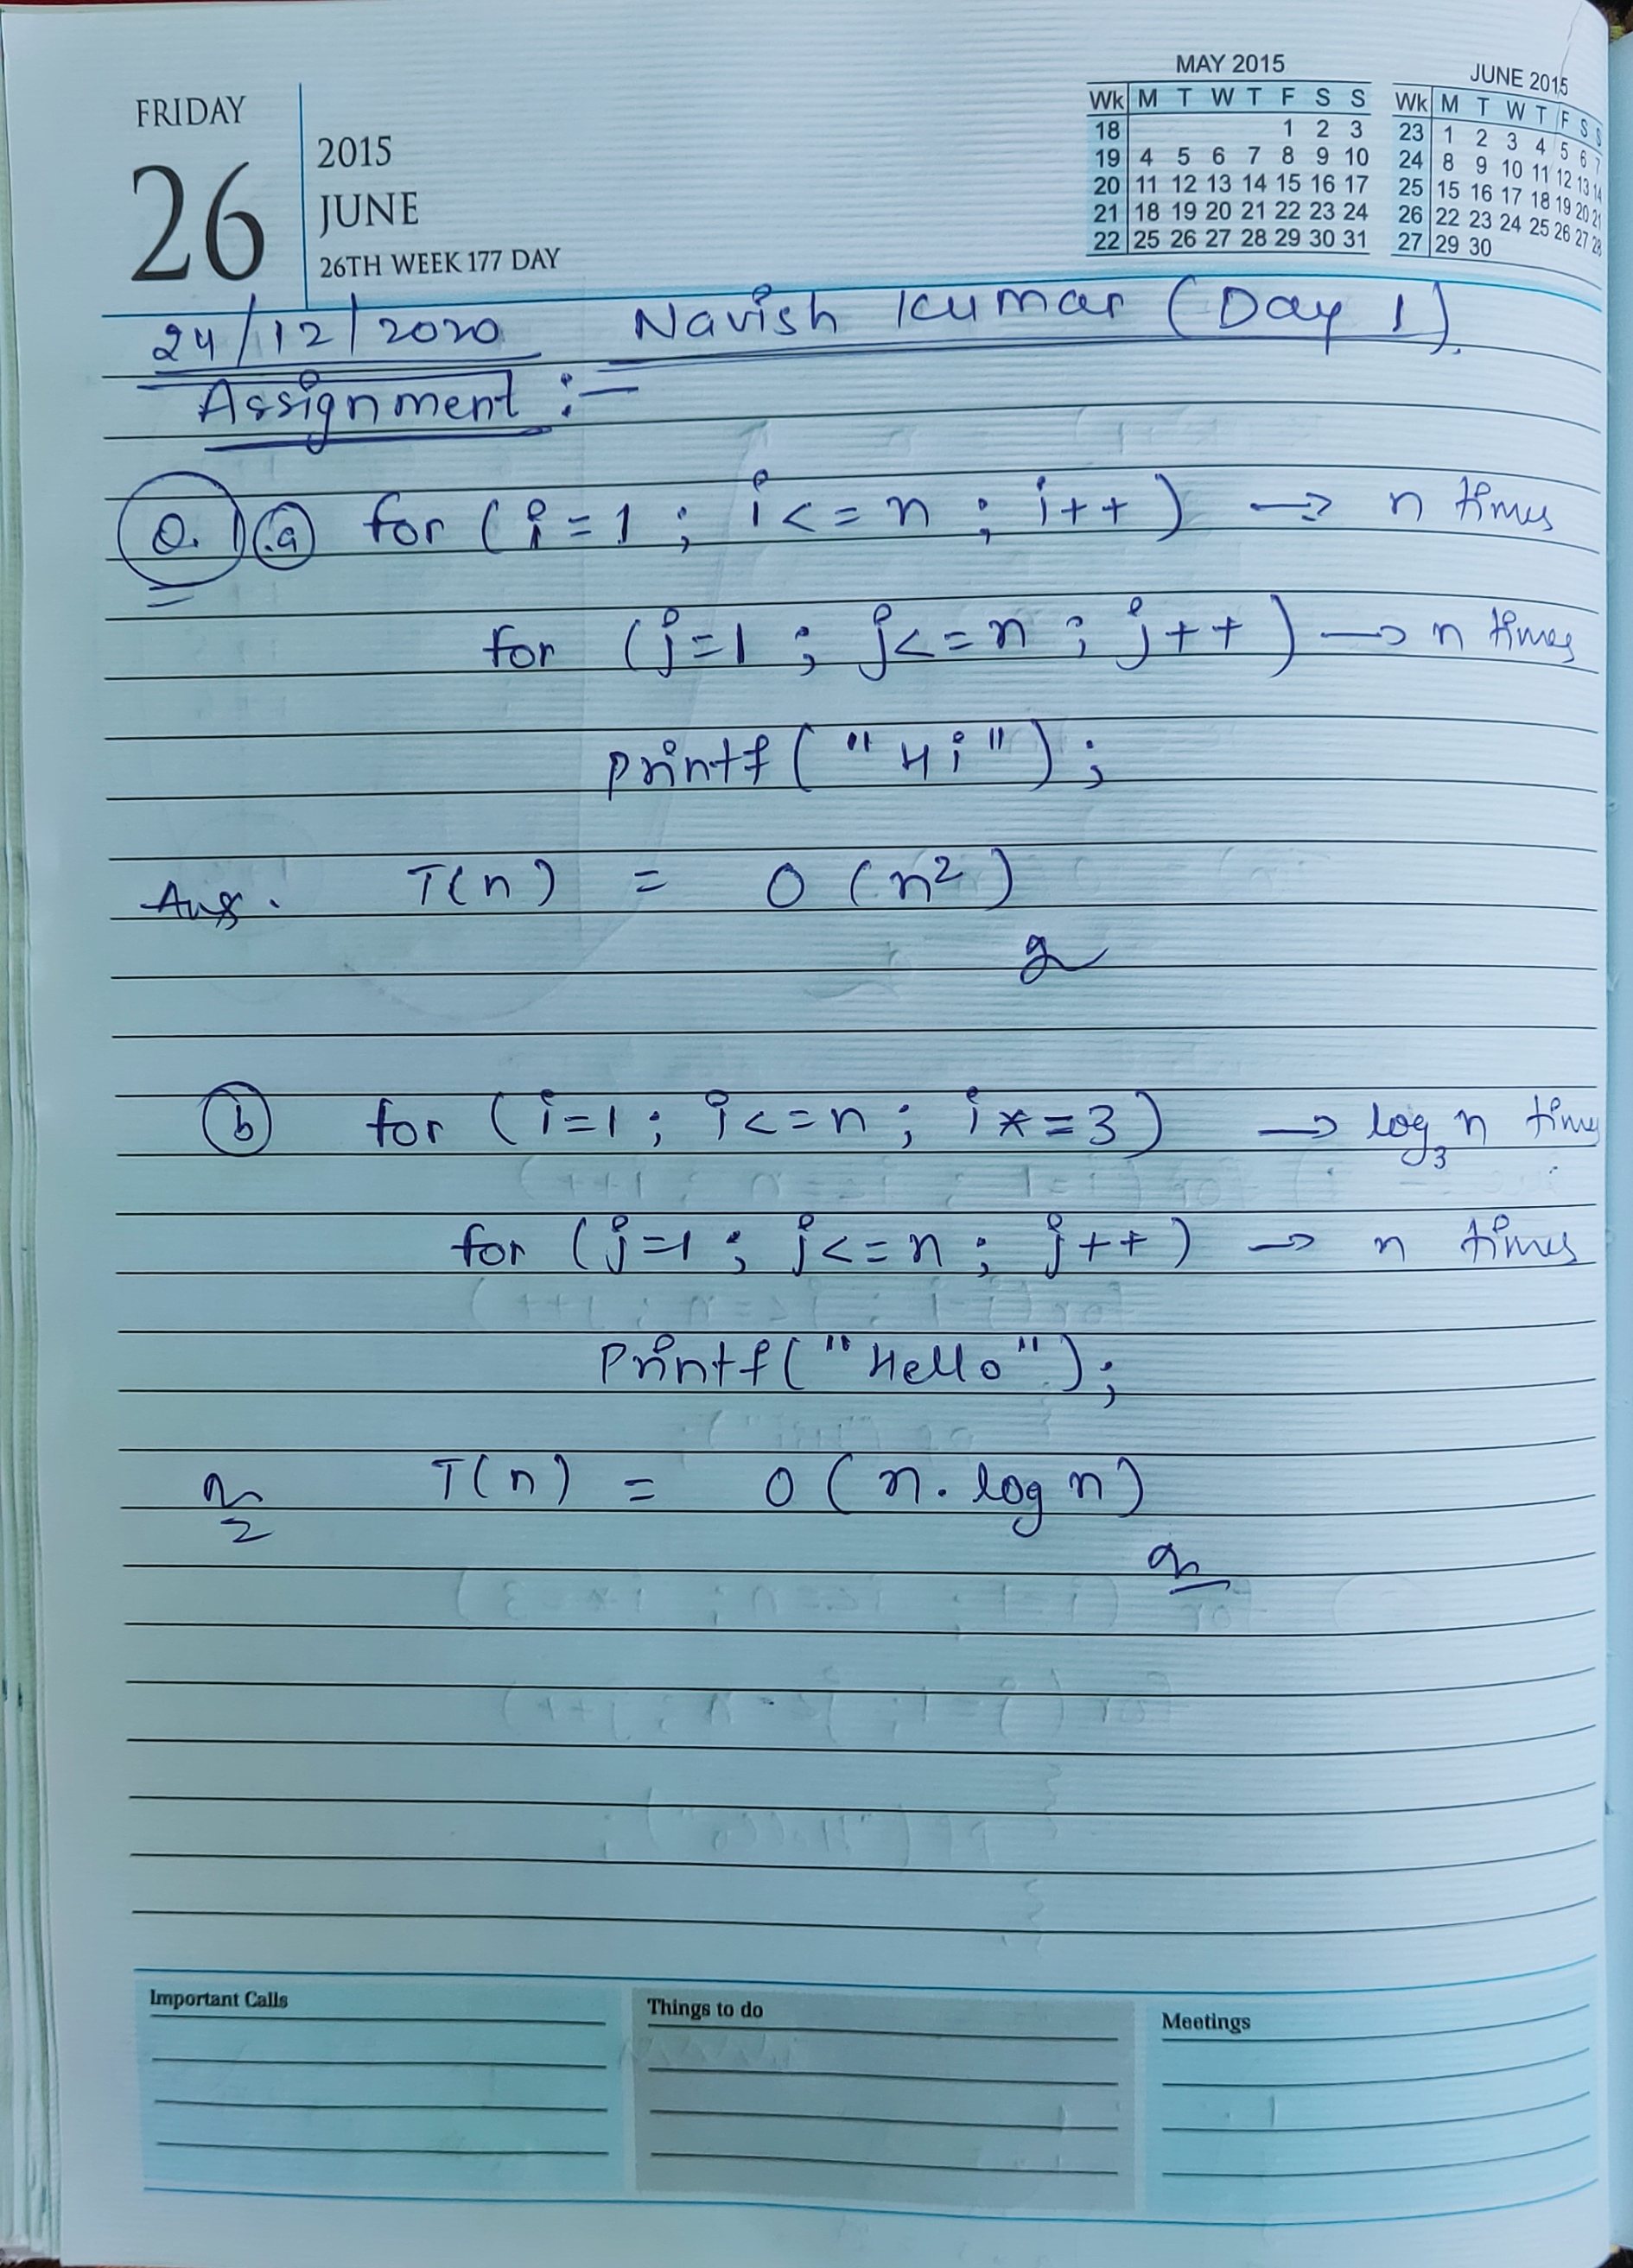 FRIDAY
26
2015
JUNE
26TH WEEK 177 DAY
MAY 2015
Wk M T W T F S S
18 1 2 3
19 4 5 6 7 8 9 10
20 11 12 13 14 15 16 17
21 18 19 20 21 22 23 24
22 25 26 27 28 29 30 31
JUNE 2015
Wk M T W T F S S
23 1 2 3 4 5 6 7
24 8 9 10 11 12 13 14
25 15 16 17 18 19 20 21
26 22 23 24 25 26 27 28
27 29 30
24/12/2020 Navish Kumar (Day 1).
Assignment :-
Q.1 (a) for (i=1 ; i<=n ; i++) → n times
for (j=1 ; j<=n ; j++) → n times
printf("Hi");
Ans. T(n) = O(n²)
(b) for (i=1; i<=n; i*=3) → log₃ n times
for (j=1; j<=n; j++) → n times
Printf("Hello");
T(n) = O(n. log n)
Important Calls
Things to do
Meetings